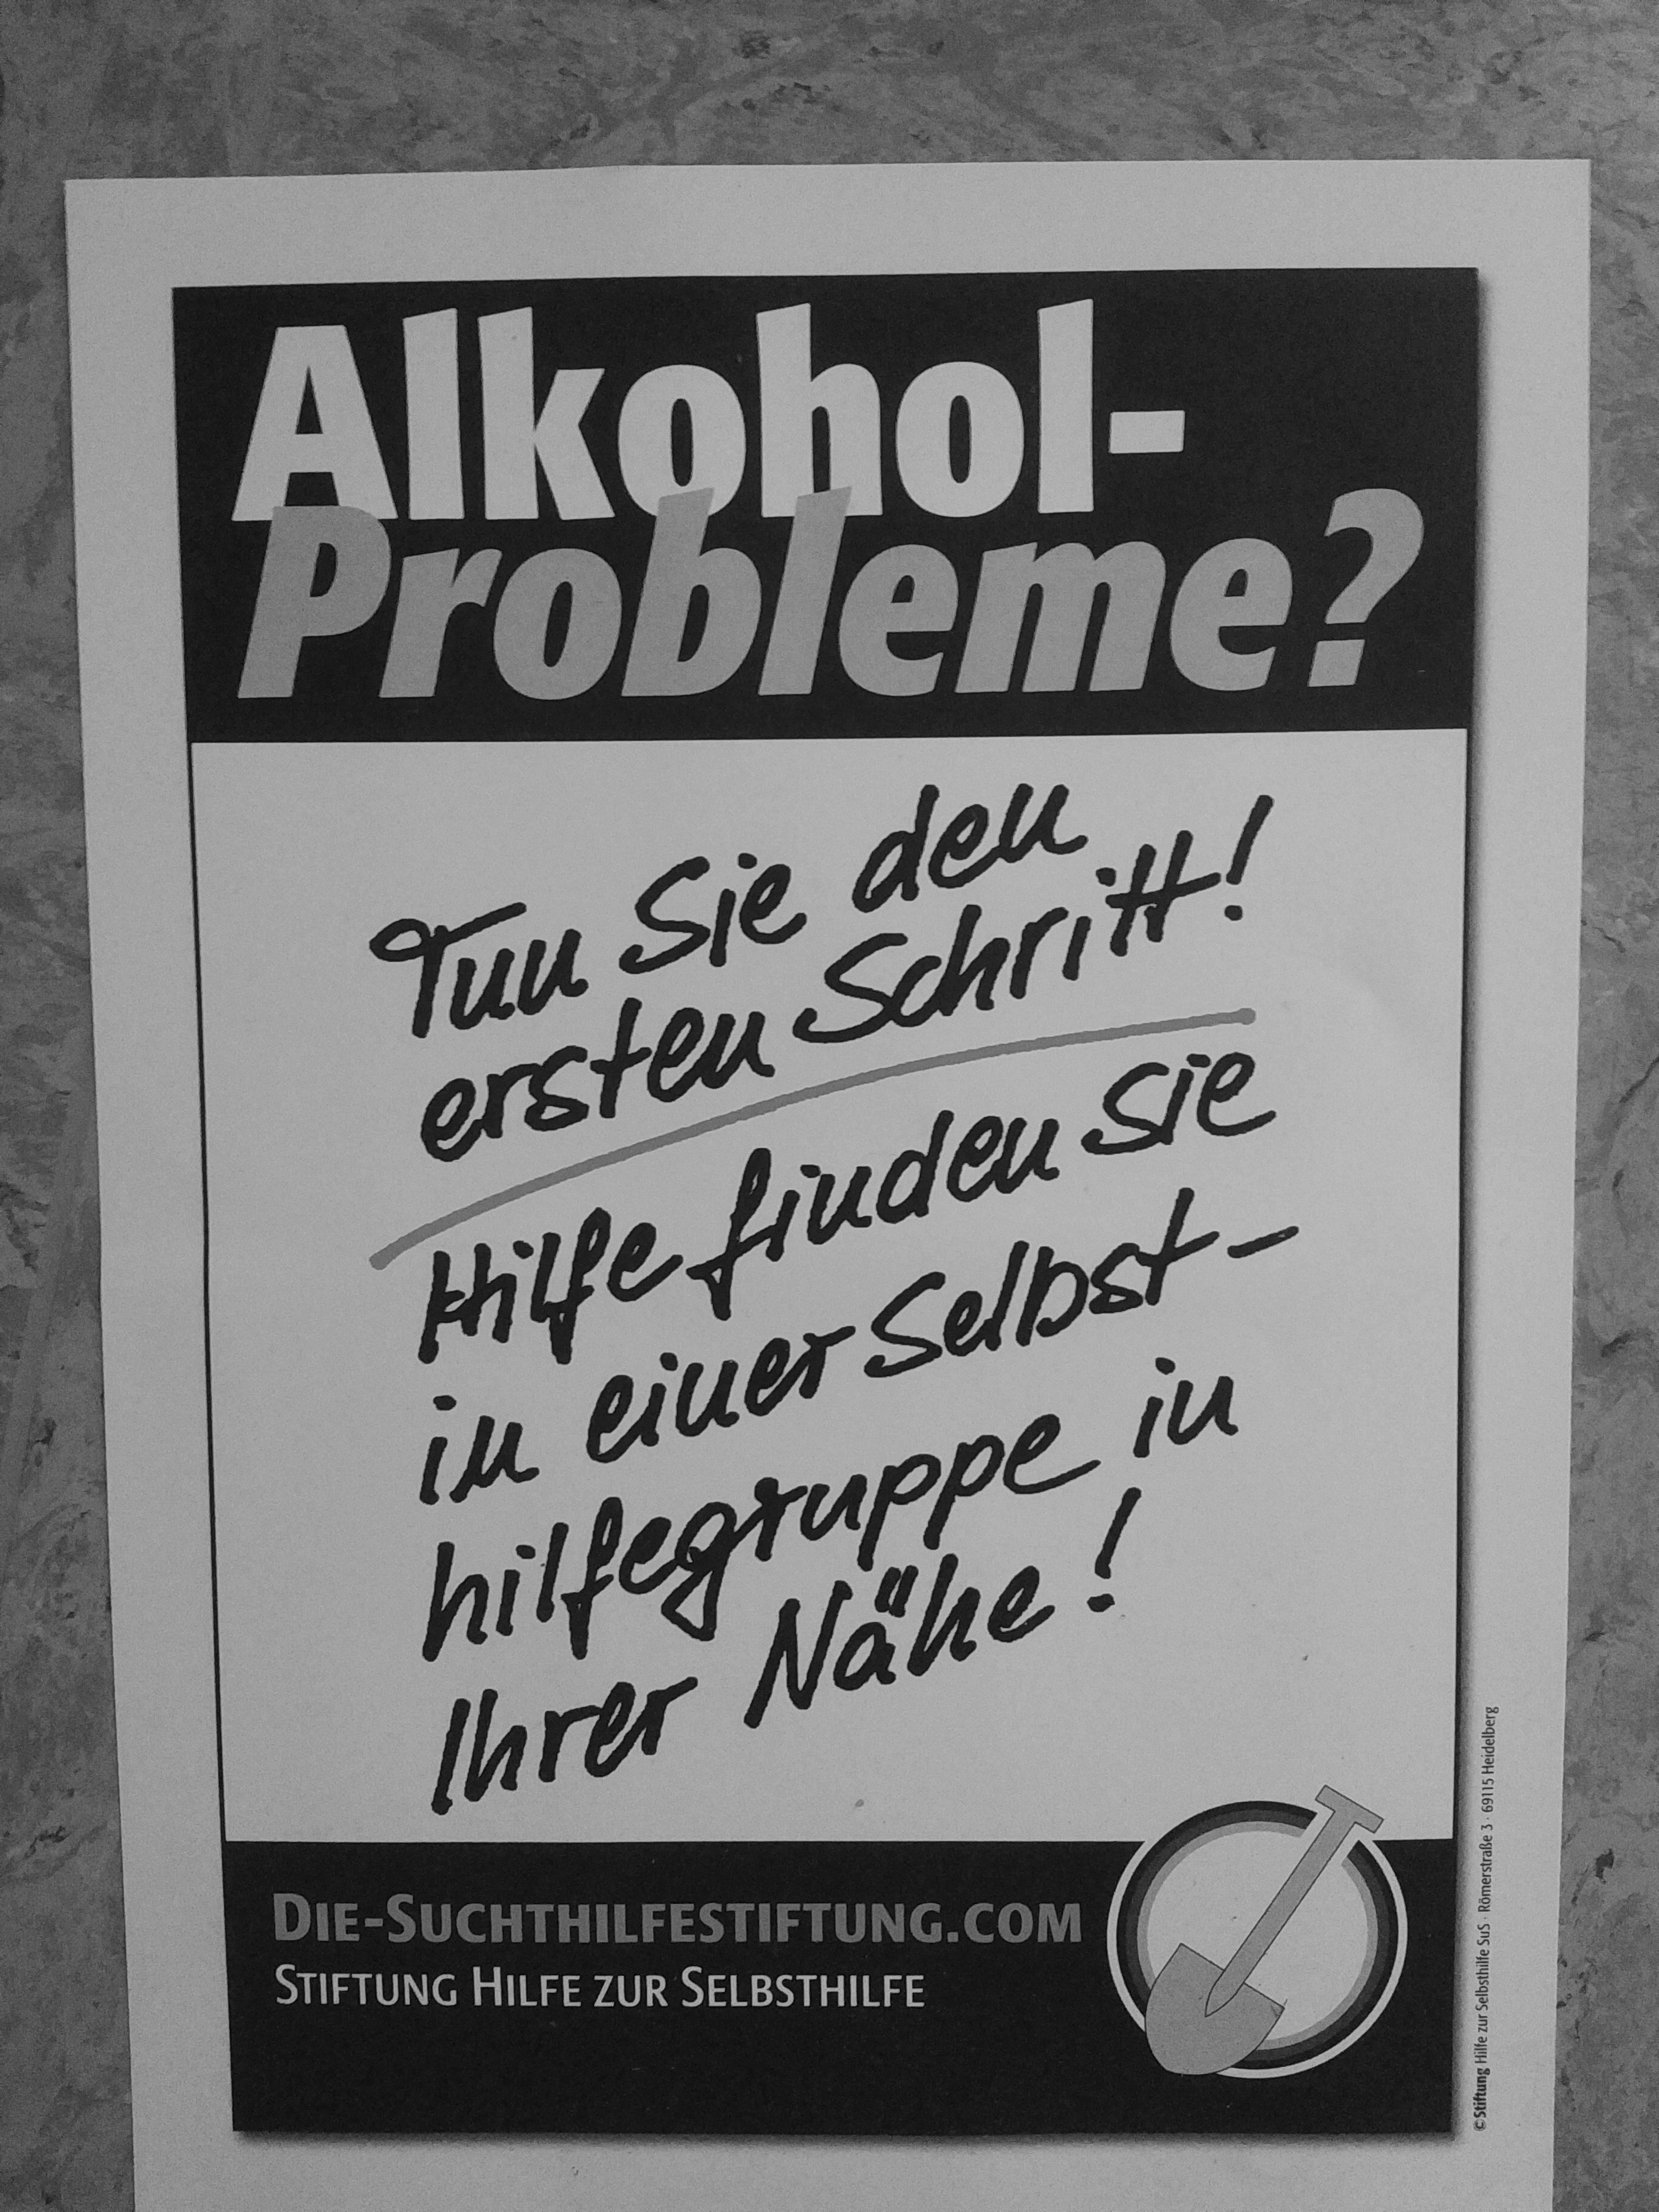 Alkohol-
Probleme?
Tun Sie den
ersten Schritt!
Hilfe finden Sie
in einer Selbst-
hilfegruppe in
Ihrer Nähe!
DIE-SUCHTHILFESTIFTUNG.COM
STIFTUNG HILFE ZUR SELBSTHILFE
© Stiftung Hilfe zur Selbsthilfe SuS · Römerstraße 3 · 69115 Heidelberg